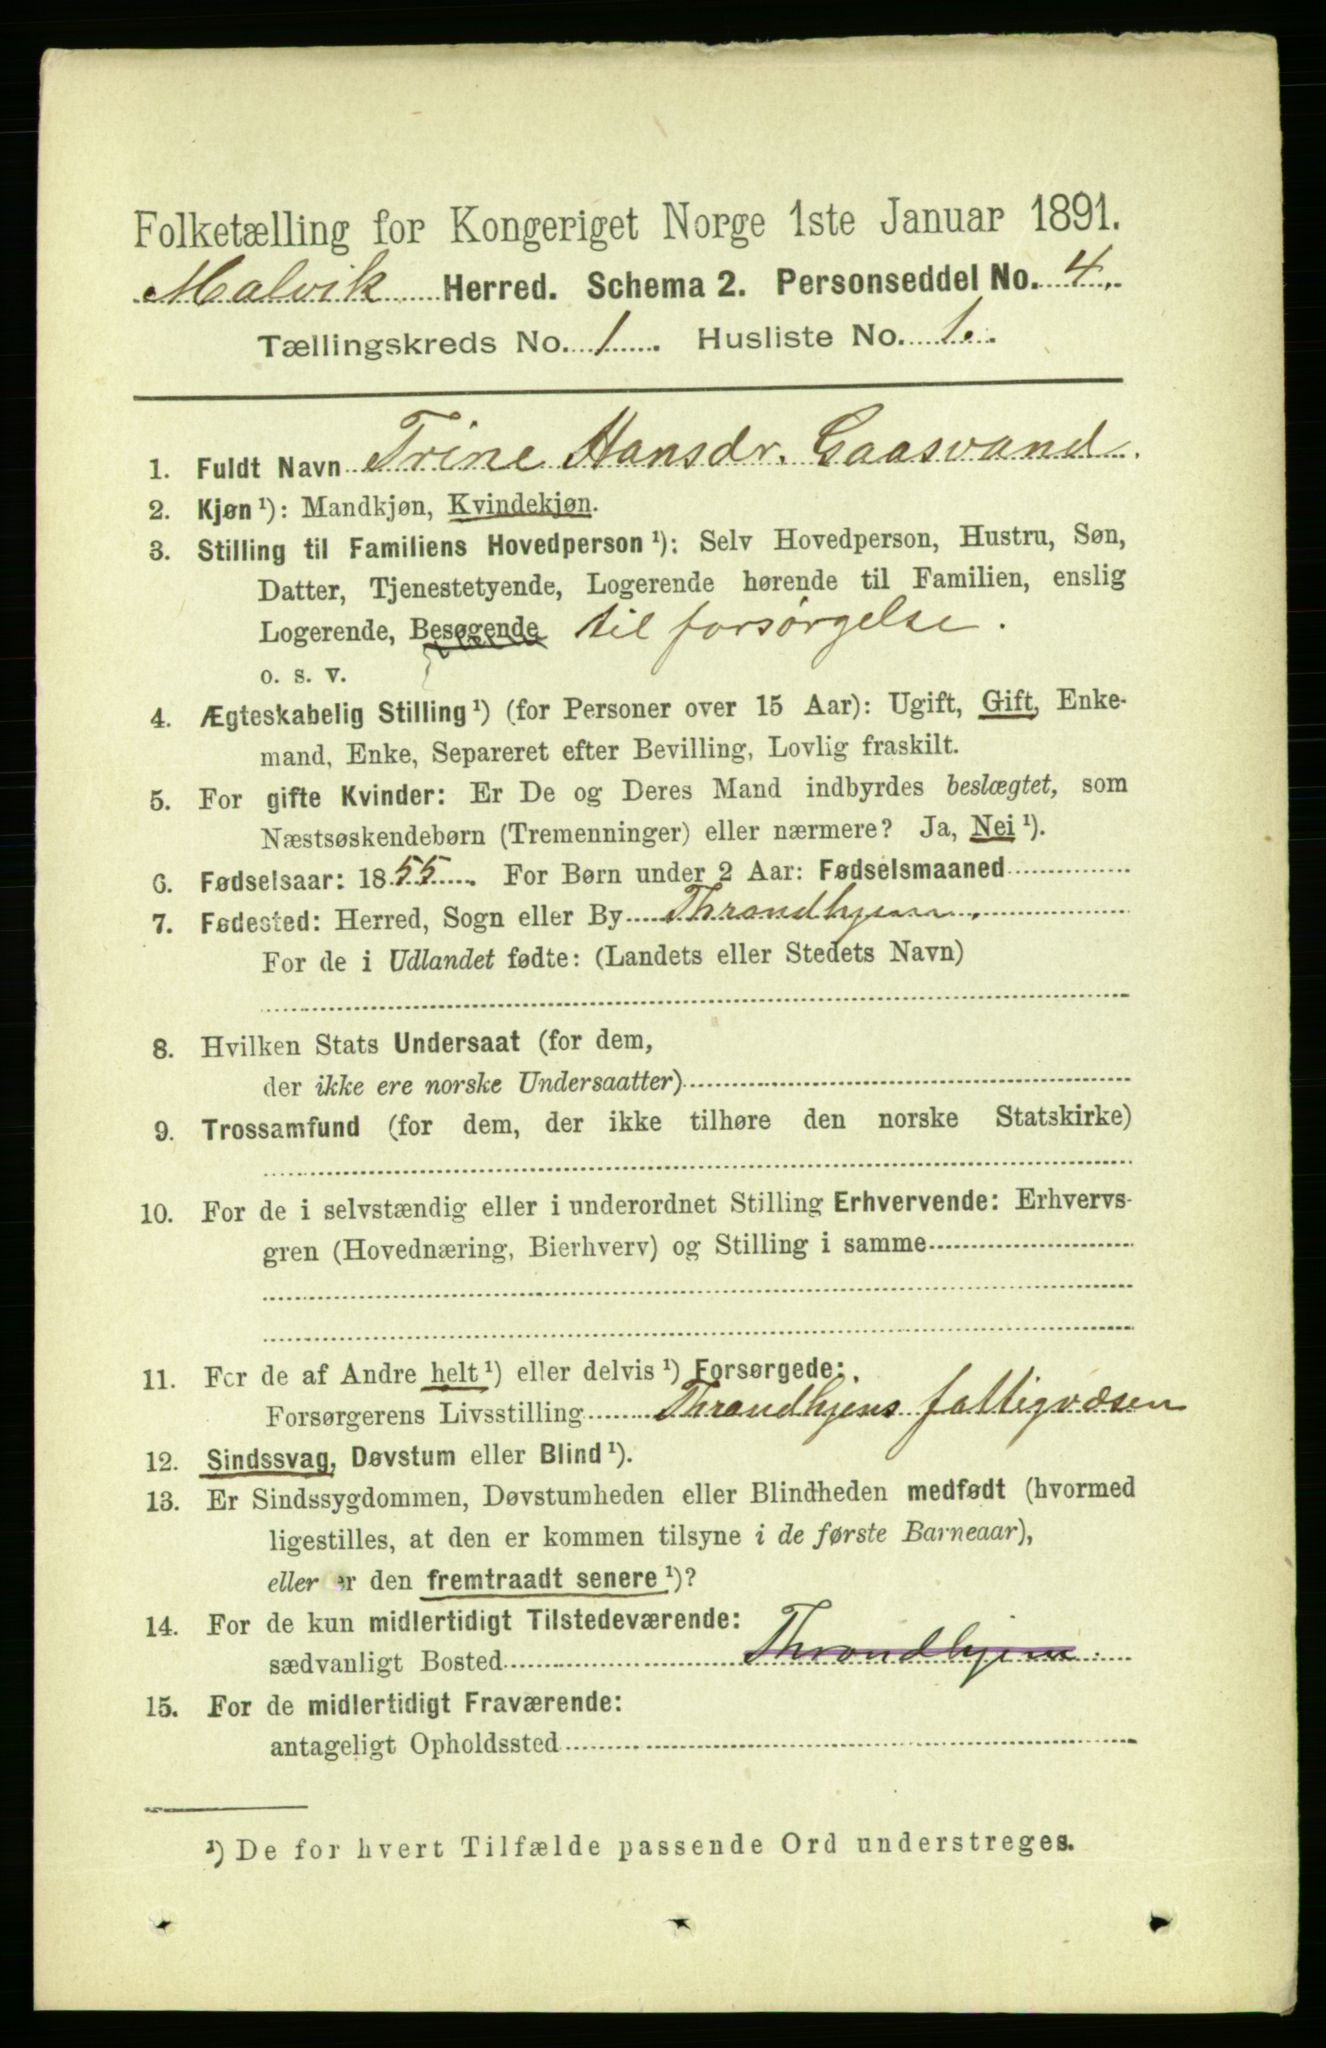 Folketælling for Kongeriget Norge 1ste Januar 1891.
Malvik Herred. Schema 2. Personseddel No. 4.
Tællingskreds No. 1. Husliste No. 1.
1. Fuldt Navn Trine Hansdr. Gaasvand.
2. Kjøn ¹): Mandkjøn, Kvindekjøn.
3. Stilling til Familiens Hovedperson ¹): Selv Hovedperson, Hustru, Søn,
Datter, Tjenestetyende, Logerende hørende til Familien, enslig
Logerende, Besøgende til forsørgelse.
o. s. v.
4. Ægteskabelig Stilling ¹) (for Personer over 15 Aar): Ugift, Gift, Enke-
mand, Enke, Separeret efter Bevilling, Lovlig fraskilt.
5. For gifte Kvinder: Er De og Deres Mand indbyrdes beslægtet, som
Næstsøskendebørn (Tremenninger) eller nærmere? Ja, Nei ¹).
6. Fødselsaar: 1855. For Børn under 2 Aar: Fødselsmaaned
7. Fødested: Herred, Sogn eller By Throndhjem.
For de i Udlandet fødte: (Landets eller Stedets Navn)
8. Hvilken Stats Undersaat (for dem,
der ikke ere norske Undersaatter)
9. Trossamfund (for dem, der ikke tilhøre den norske Statskirke)
10. For de i selvstændig eller i underordnet Stilling Erhvervende: Erhvervs-
gren (Hovednæring, Bierhverv) og Stilling i samme
11. For de af Andre helt ¹) eller delvis ¹) Forsørgede:
Forsørgerens Livsstilling Throndhjens fattigvæsen
12. Sindssvag, Døvstum eller Blind ¹).
13. Er Sindssygdommen, Døvstumheden eller Blindheden medfødt (hvormed
ligestilles, at den er kommen tilsyne i de første Barneaar),
eller er den fremtraadt senere ¹)?
14. For de kun midlertidigt Tilstedeværende:
sædvanligt Bosted Throndhjem.
15. For de midlertidigt Fraværende:
antageligt Opholdssted
¹) De for hvert Tilfælde passende Ord understreges.